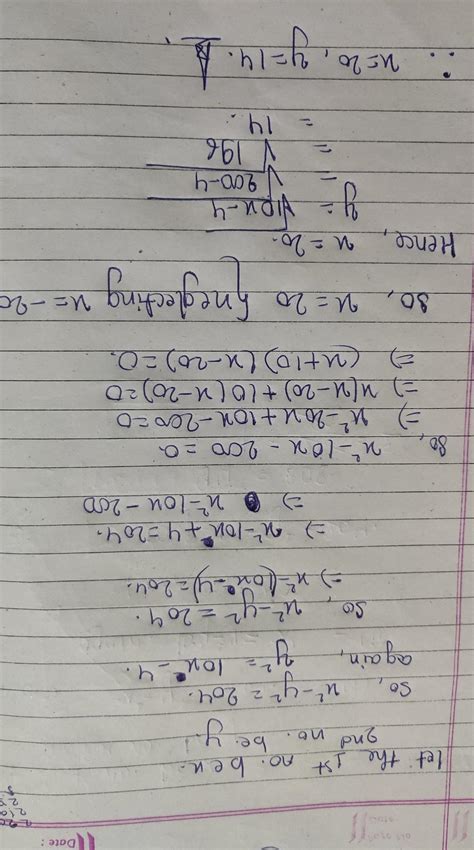 Date :
Let the 1st no. be x.
2nd no. be y.
So, x² - y² = 204.
again, y² = 10x - 4.
So, x² - y² = 204.
=) x² - (10x - 4) = 204.
=) x² - 10x + 4 = 204.
=) x² - 10x - 200
So, x² - 10x - 200 = 0.
=) x² - 20x + 10x - 200 = 0
=) x(x - 20) + 10(x - 20) = 0
=) (x + 10) (x - 20) = 0.
So, x = 20 [neglecting x = -20
Hence, x = 20.
y = √10x - 4
= √200 - 4
= √196
= 14.
∴ x = 20, y = 14.